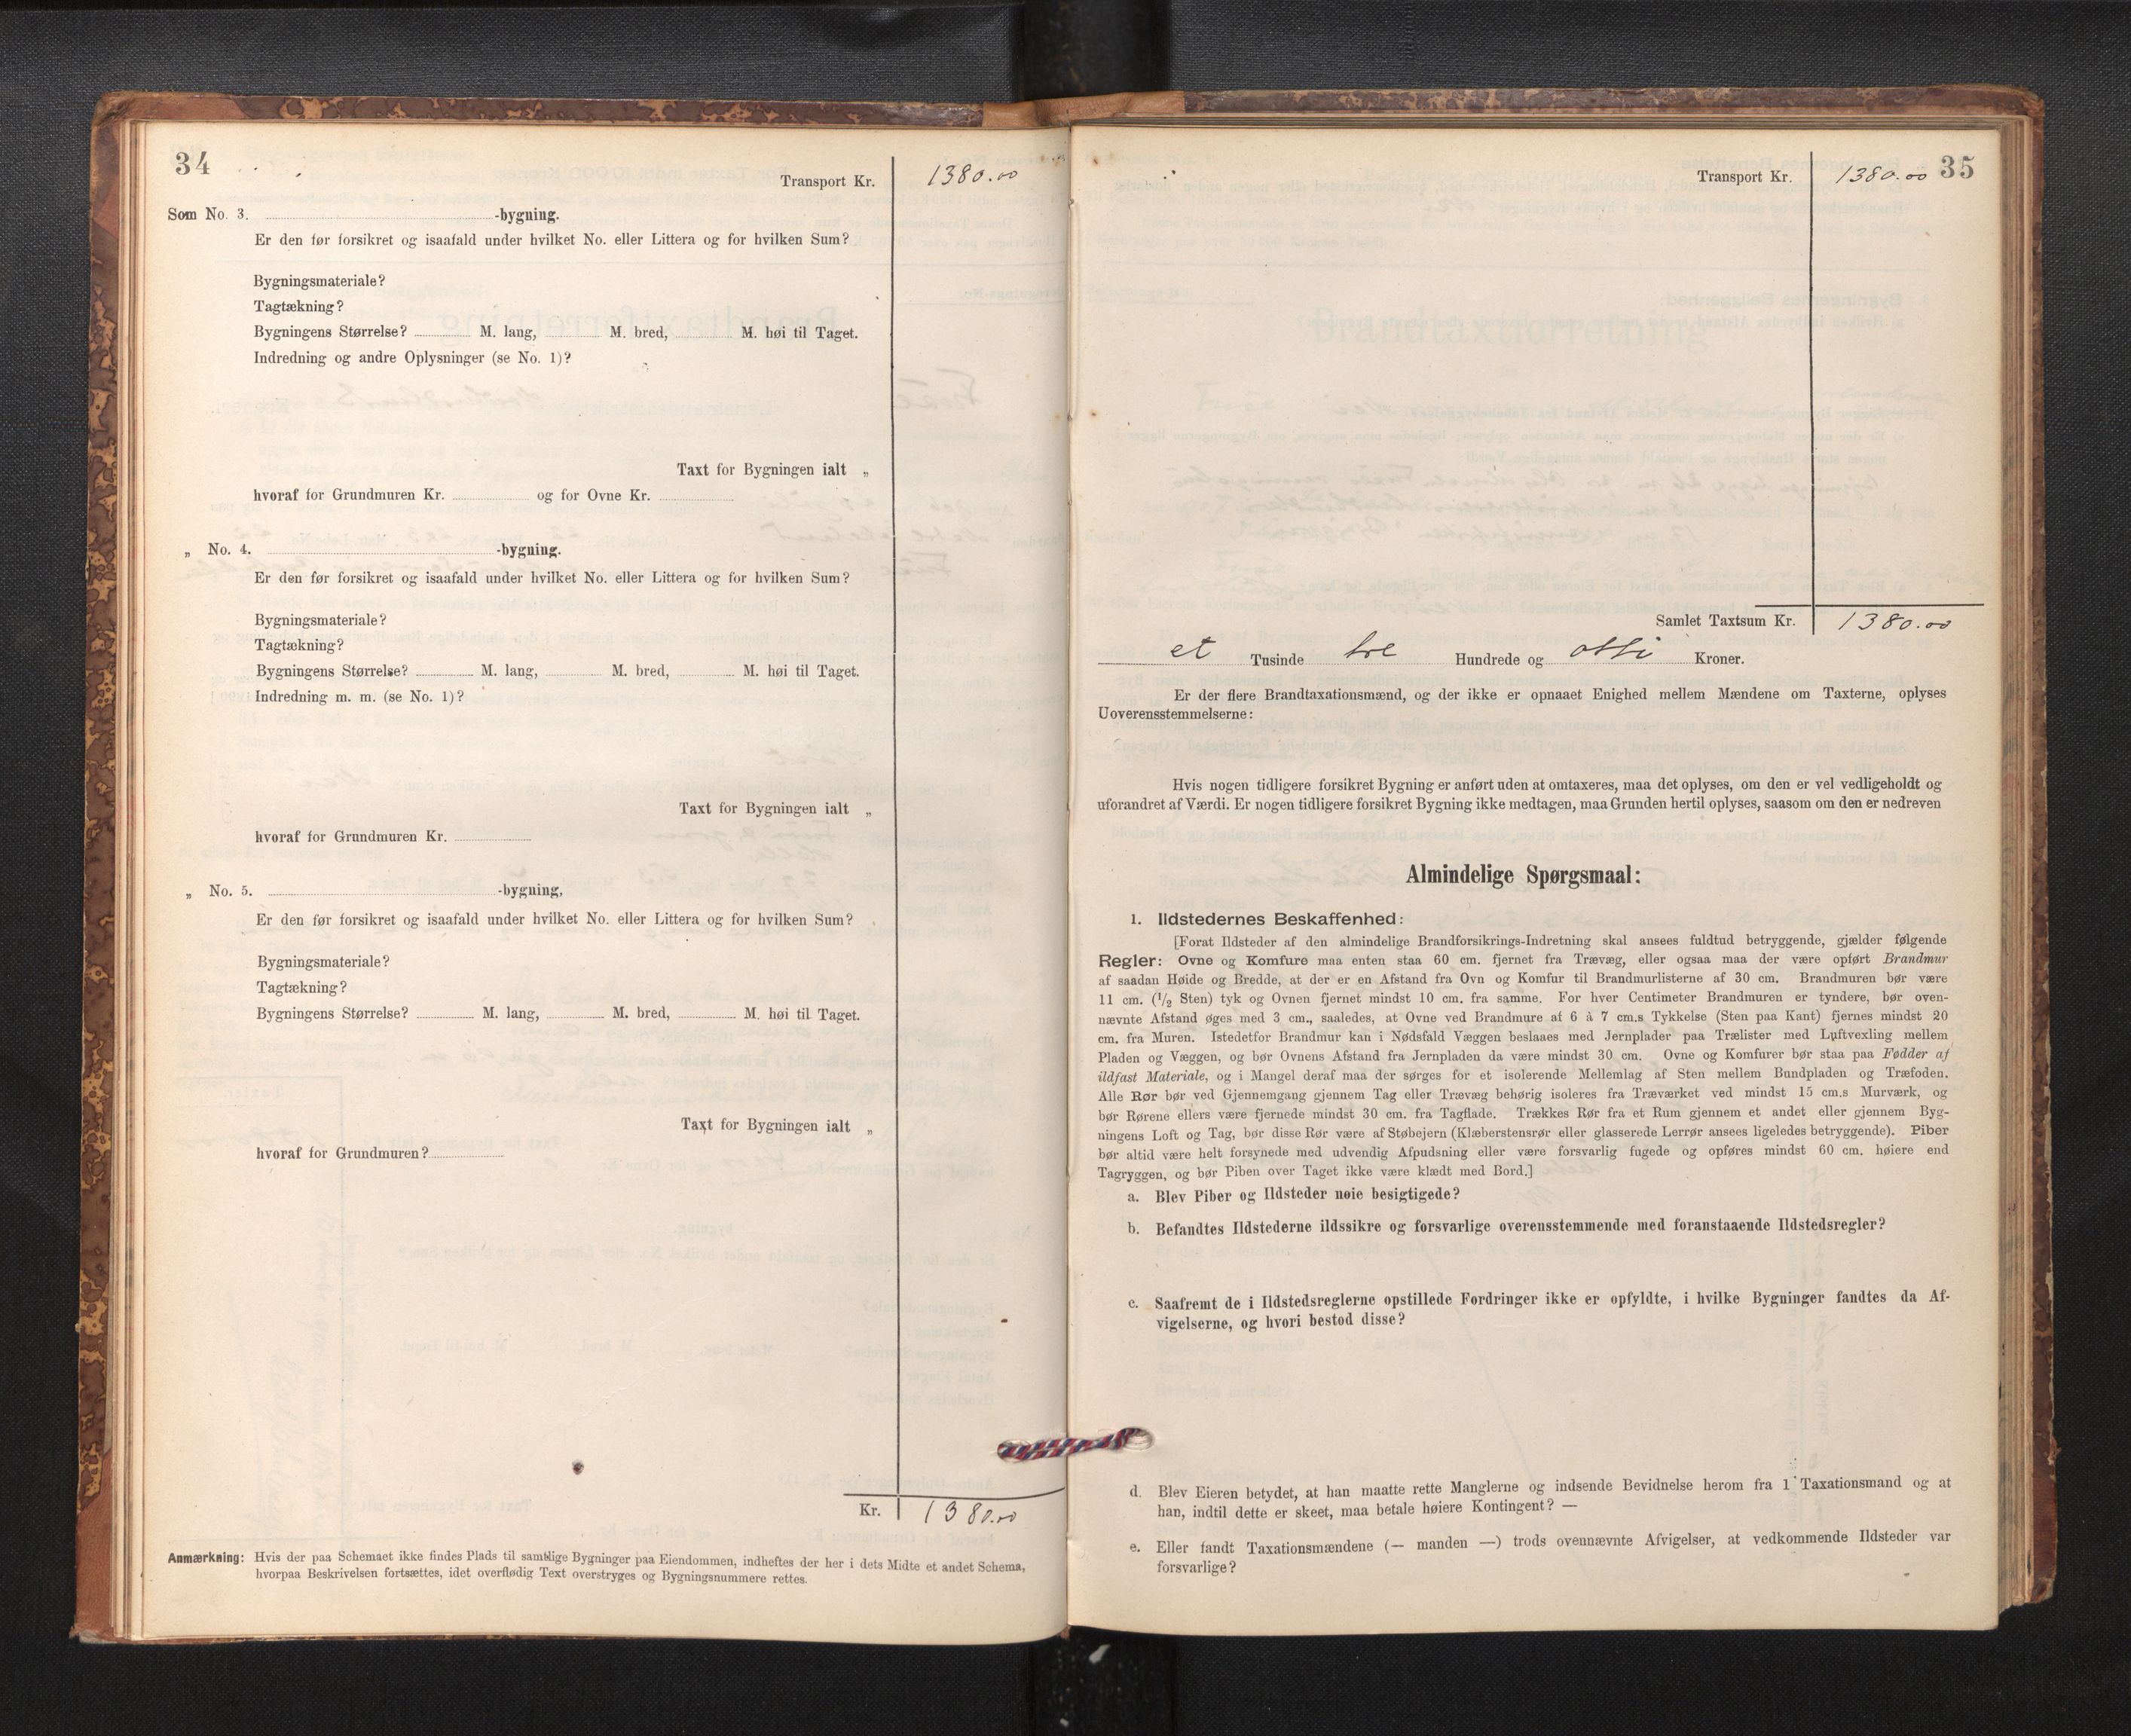 34
Transport Kr. 1380.00
Som No. 3. -bygning.
Er den før forsikret og isaafald under hvilket No. eller Littera og for hvilken Sum?
Bygningsmateriale?
Tagtækning?
Bygningens Størrelse? M. lang, M. bred, M. høi til Taget.
Indredning og andre Oplysninger (se No. 1)?
Taxt for Bygningen ialt „
hvoraf for Grundmuren Kr. og for Ovne Kr.
„ No. 4. -bygning.
Er den før forsikret og isaafald under hvilket No. eller Littera og for hvilken Sum?
Bygningsmateriale?
Tagtækning?
Bygningens Størrelse? M. lang, M. bred, M. høi til Taget.
Indredning m. m. (se No. 1)?
Taxt for Bygningen ialt „
hvoraf for Grundmuren Kr.
„ No. 5. -bygning,
Er den før forsikret og isaafald under hvilket No. eller Littera og for hvilken Sum?
Bygningsmateriale?
Tagtækning?
Bygningens Størrelse? M. lang, M. bred, M. høi til Taget.
Taxt for Bygningen ialt „
hvoraf for Grundmuren?
Kr. 1380.00
Anmærkning: Hvis der paa Schemaet ikke findes Plads til samtlige Bygninger paa Eiendommen, indheftes der her i dets Midte et andet Schema,
hvorpaa Beskrivelsen fortsættes, idet overflødig Text overstryges og Bygningsnummere rettes.
Transport Kr. 1380.00 35
Samlet Taxtsum Kr. 1380.00
et Tusinde tre Hundrede og otti Kroner.
Er der flere Brandtaxationsmænd, og der ikke er opnaaet Enighed mellem Mændene om Taxterne, oplyses
Uoverensstemmelserne:
Hvis nogen tidligere forsikret Bygning er anført uden at omtaxeres, maa det oplyses, om den er vel vedligeholdt og
uforandret af Værdi. Er nogen tidligere forsikret Bygning ikke medtagen, maa Grunden hertil oplyses, saasom om den er nedreven
Almindelige Spørgsmaal:
1. Ildstedernes Beskaffenhed:
[Forat Ildsteder af den almindelige Brandforsikrings-Indretning skal ansees fuldtud betryggende, gjælder følgende
Regler: Ovne og Komfure maa enten staa 60 cm. fjernet fra Trævæg, eller ogsaa maa der være opført Brandmur
af saadan Høide og Bredde, at der er en Afstand fra Ovn og Komfur til Brandmurlisterne af 30 cm. Brandmuren bør være
11 cm. (1/2 Sten) tyk og Ovnen fjernet mindst 10 cm. fra samme. For hver Centimeter Brandmuren er tyndere, bør oven-
nævnte Afstand øges med 3 cm., saaledes, at Ovne ved Brandmure af 6 à 7 cm.s Tykkelse (Sten paa Kant) fjernes mindst 20
cm. fra Muren. Istedetfor Brandmur kan i Nødsfald Væggen beslaaes med Jernplader paa Trælister med Luftvexling mellem
Pladen og Væggen, og bør Ovnens Afstand fra Jernpladen da være mindst 30 cm. Ovne og Komfurer bør staa paa Fødder af
ildfast Materiale, og i Mangel deraf maa der sørges for et isolerende Mellemlag af Sten mellem Bundpladen og Træfoden.
Alle Rør bør ved Gjennemgang gjennem Tag eller Trævæg behørig isoleres fra Træværket ved mindst 15 cm.s Murværk, og
bør Rørene ellers være fjernede mindst 30 cm. fra Tagflade. Trækkes Rør fra et Rum gjennem et andet eller gjennem Byg-
ningens Loft og Tag, bør disse Rør være af Støbejern (Klæberstensrør eller glasserede Lerrør ansees ligeledes betryggende). Piber
bør altid være helt forsynede med udvendig Afpudsning eller være forsvarlig fugede og opføres mindst 60 cm. høiere end
Tagryggen, og bør Piben over Taget ikke være klædt med Bord.]
a. Blev Piber og Ildsteder nøie besigtigede?
b. Befandtes Ildstederne ildssikre og forsvarlige overensstemmende med foranstaaende Ildstedsregler?
c. Saafremt de i Ildstedsreglerne opstillede Fordringer ikke er opfyldte, i hvilke Bygninger fandtes da Af-
vigelserne, og hvori bestod disse?
d. Blev Eieren betydet, at han maatte rette Manglerne og indsende Bevidnelse herom fra 1 Taxationsmand og at
han, indtil dette er skeet, maa betale høiere Kontingent? —
e. Eller fandt Taxationsmændene (— manden —) trods ovennævnte Afvigelser, at vedkommende Ildsteder var
forsvarlige?